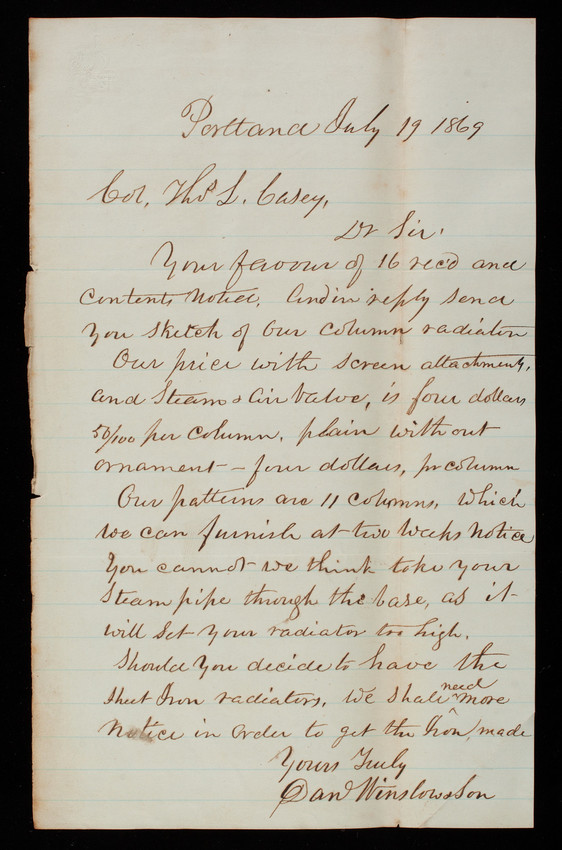 Portland July 19 1869
Col. Thos L. Casey,
Dr Sir.
Your favour of 16 rec'd and
contents noted. And in reply send
you sketch of our column radiator
Our price with screen attachments,
and Steam & Air Valve, is four dollars
50/100 per column. plain without
ornament - four dollars, pr column
Our patterns are 11 columns, which
we can furnish at two weeks notice
You cannot we think take your
Steam pipe through the base, as it
will set your radiator too high.
Should you decide to have the
sheet Iron radiators, we shall need more
notice in order to get the Iron made
Yours Truly
Danl Winslow & Son